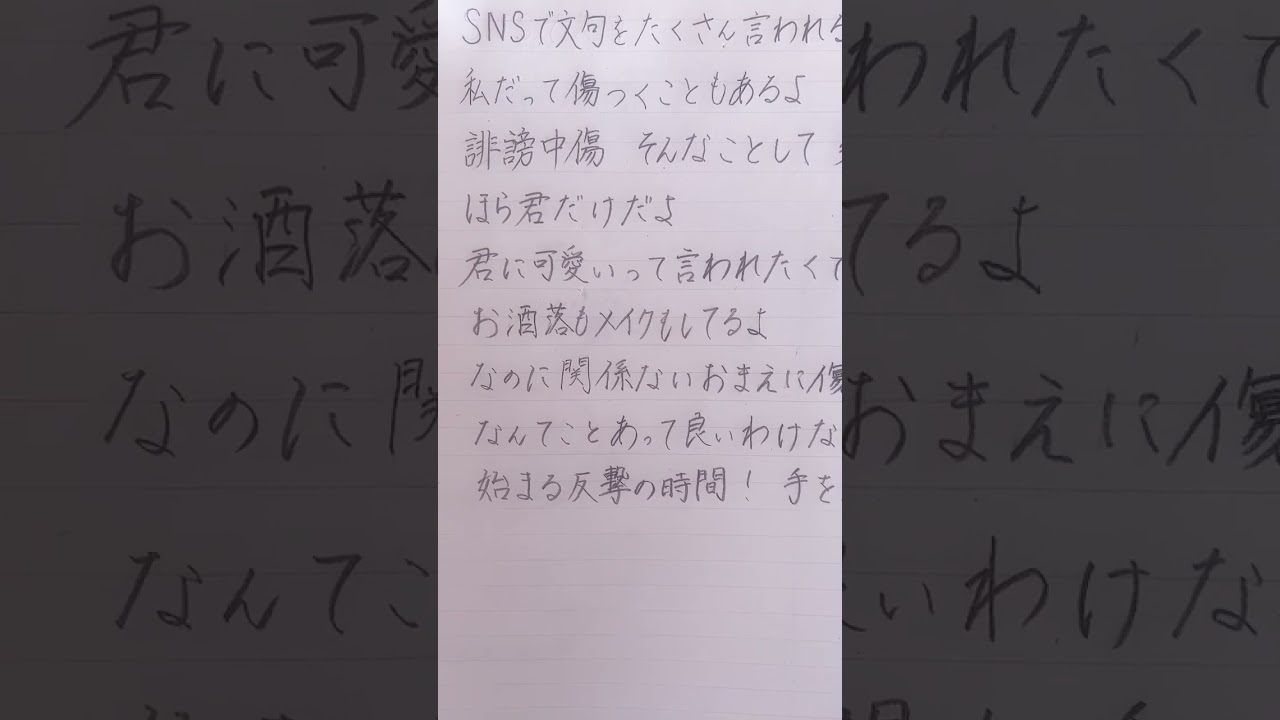 SNSで文句をたくさん言われる
私だって傷つくこともあるよ
誹謗中傷 そんなことして
ほら君だけだよ
君に可愛いって言われたくて
お洒落もメイクもしてるよ
なのに関係ないおまえに傷
なんてことあって良いわけな
始まる反撃の時間! 手を